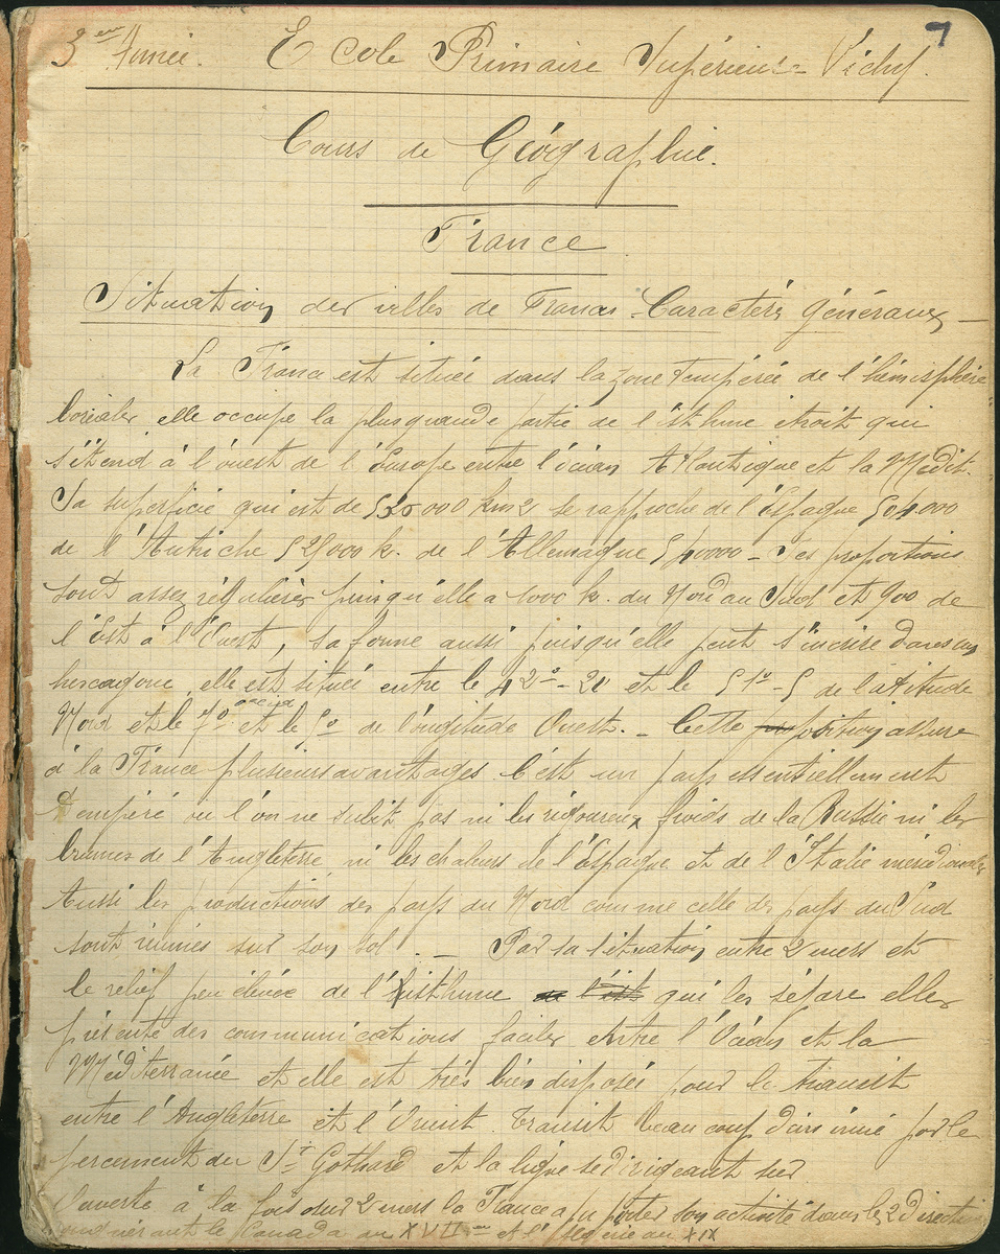 7
3ème Année. Ecole Primaire Supérieure Vichy.
Cours de Géographie.
France
Situation des villes de France. Caractères généraux —
La France est située dans la zone tempérée de l'hémisphère
boréale, elle occupe la plus grande partie de l'isthme étroit qui
s'étend à l'ouest de l'Europe entre l'océan Atlantique et la Médit.
Sa superficie qui est de 530 000 km2 se rapproche de l'Espagne 504.000
de l'Autriche 525000 k. de l'Allemagne 540000 - Ses proportions
sont assez régulières puisqu'elle a 1000 k. du Nord au Sud et 900 de
l'Est à l'Ouest, sa forme aussi puisqu'elle peut s'incrire dans un
hexagone, elle est située entre le 42°-20 et le 51°-5 de latitude
Nord et le 7° et le 5° de longitude Ouest. - Cette position assure
à la France plusieurs avantages. C'est un pays essentiellement
tempéré où l'on ne subit pas ni les rigoureux froids de la Russie ni les
brumes de l'Angleterre, ni les chaleurs de l'Espagne et de l'Italie méridionale
Aussi les productions des pays du Nord comme celle des pays du Sud
sont réunies sur son sol. - Par sa situation entre 2 mers et
le relief peu élevée de l'isthme qui les sépare elle
présente des communications faciles entre l'Océan et la
Méditerranée et elle est très bien disposée pour le transit
entre l'Angleterre et l'Orient. Transit beaucoup diminué par le
percement du St Gothard et la ligne se dirigeant sur
Ouverte à la fois sur 2 mers la France a pu porter son activité dans les 2 directions
conquérant le Canada au XVIIème et l'Algérie au XIX